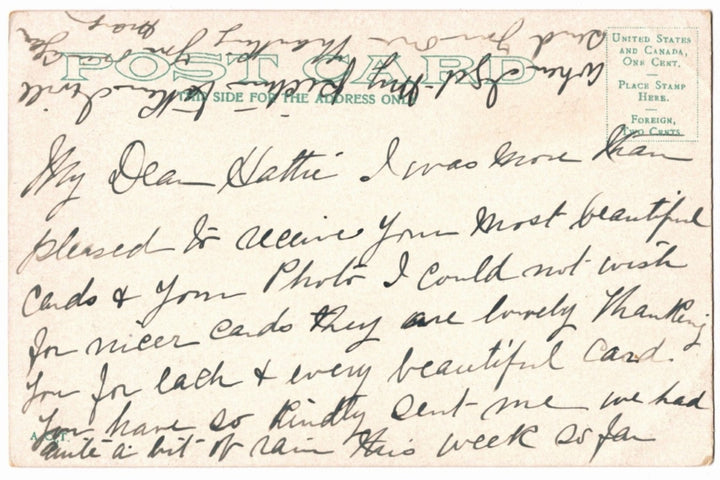 POST CARD
THIS SIDE FOR THE ADDRESS ONLY
UNITED STATES
AND CANADA,
ONE CENT.
PLACE STAMP
HERE.
FOREIGN,
TWO CENTS.
My Dear Hattie I was more than
pleased to receive your most beautiful
cards & your Photo I could not wish
for nicer cards they are lovely Thanking
you for each & every beautiful card.
you have so kindly sent me we had
quite a bit of rain this week so far
When I get my Picture taken I will
send you one Thanking you